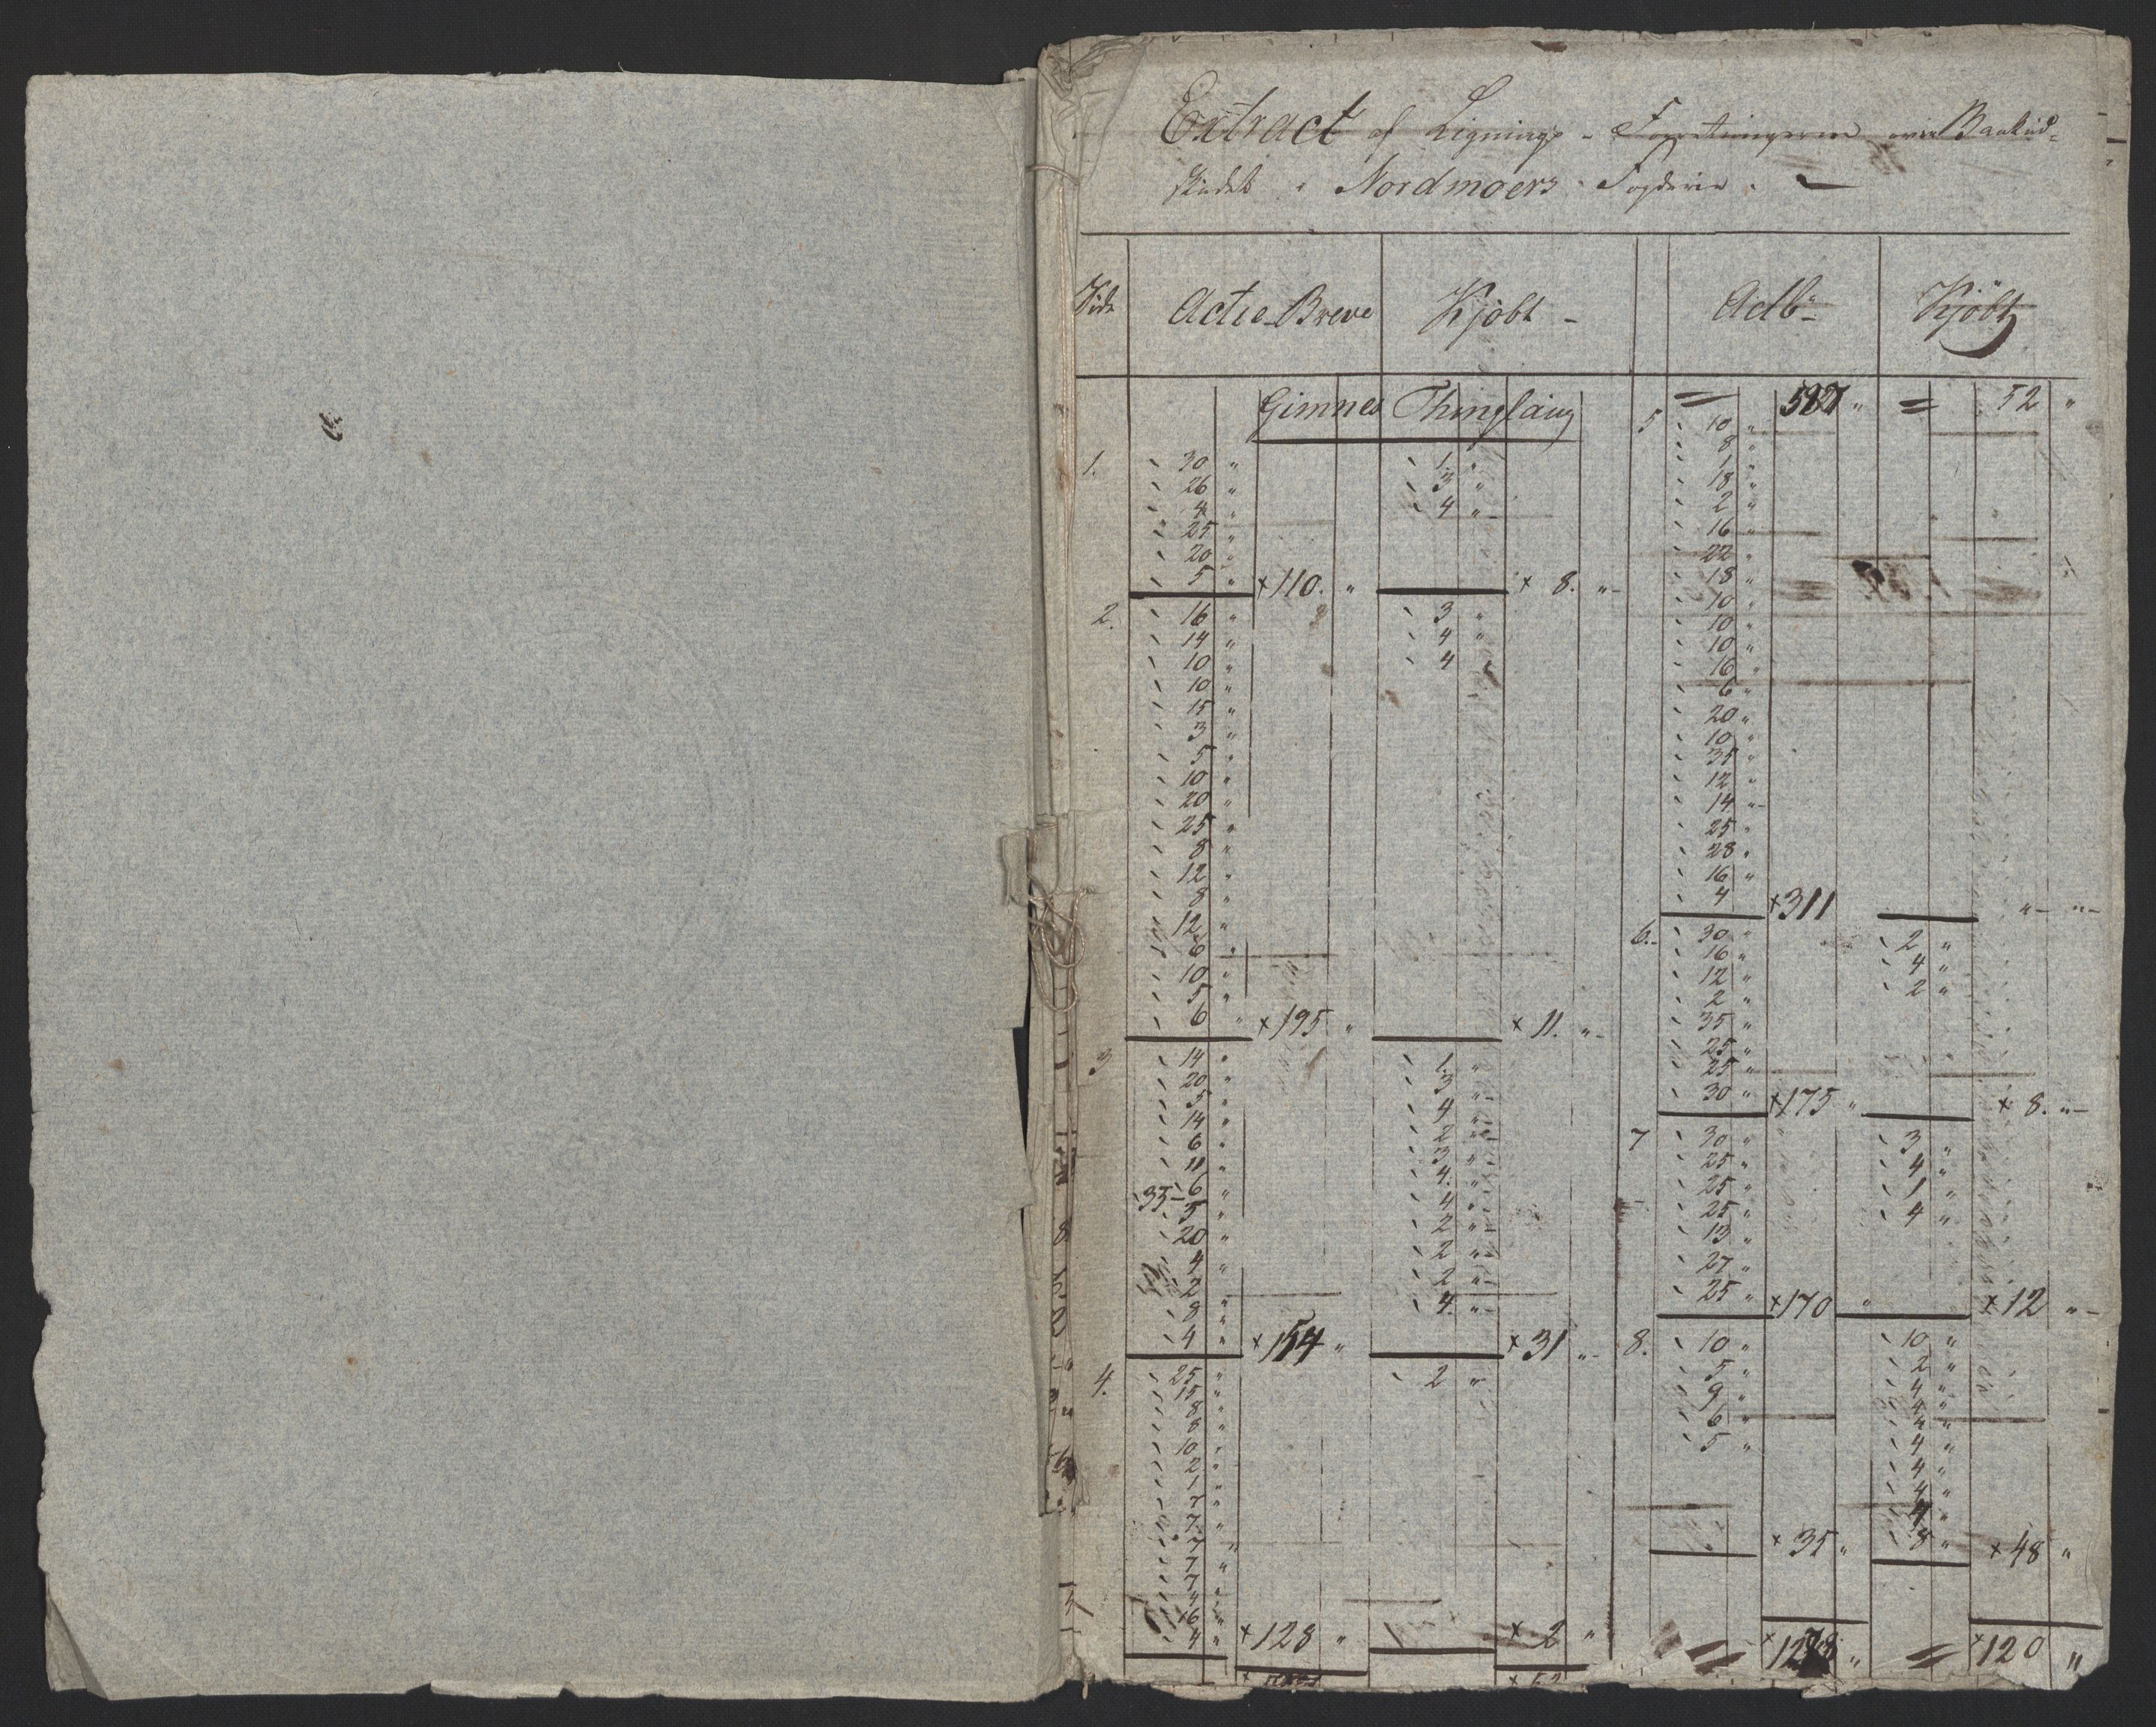 Extract af Lignings-Forretningerne over Bankud-
skudet i Nordmøers Fogderie.
Side
Actie-Breve
Kjøbt -
Actb.
Kjöbt
Gimnes Thinglaug
587 " 52 "
1.
30 " 1. "
26 " 3 "
4 " 4 "
25 "
20 "
5 " × 110. " × 8. "
2.
16 " 3 "
14 " 4 "
10 " 4
10 "
15 "
3 "
5 "
10 "
20 "
25 "
8 "
12 "
8 "
12 "
6 "
10 "
5 "
6 " × 195 " × 11. "
3
14 " 1. "
20 " 3 "
5 " 4 "
14 " 2 "
6 " 3 "
11 " 4. "
6 " 4 "
35 - 5 " 2 "
20 " 2 "
4 " 2 "
2 4. "
8 "
4 " × 154 " × 31 "
4.
25 " 2 "
15 "
8 "
8 "
10 "
2 "
1 "
7 "
7 "
7 "
7 "
7 "
4 "
16 "
4 " × 128 " × 2 "
5
10 "
8 "
1 "
18 "
2 "
16 "
22 "
18 "
10 "
10 "
10 "
16 "
6 "
20 "
10 "
35 "
12 "
14 "
25 "
28 "
16 "
4 × 311 " "
6.
30 " 2 "
16 " 4 "
12 " 2 "
2 "
35 "
25 "
25 "
30 " × 175 " × 8. "
7
30 " 3 "
25 " 4 "
25 " 1 "
25 " 4 "
13 "
27 "
25 " × 170 " × 12 "
8.
10 " 10 "
5 " 2 "
9 " 4 "
6 " 4 "
5 " 4 "
4 "
4 "
4 "
× 35 " 8 " × 48 "
× 1278 " × 120 "